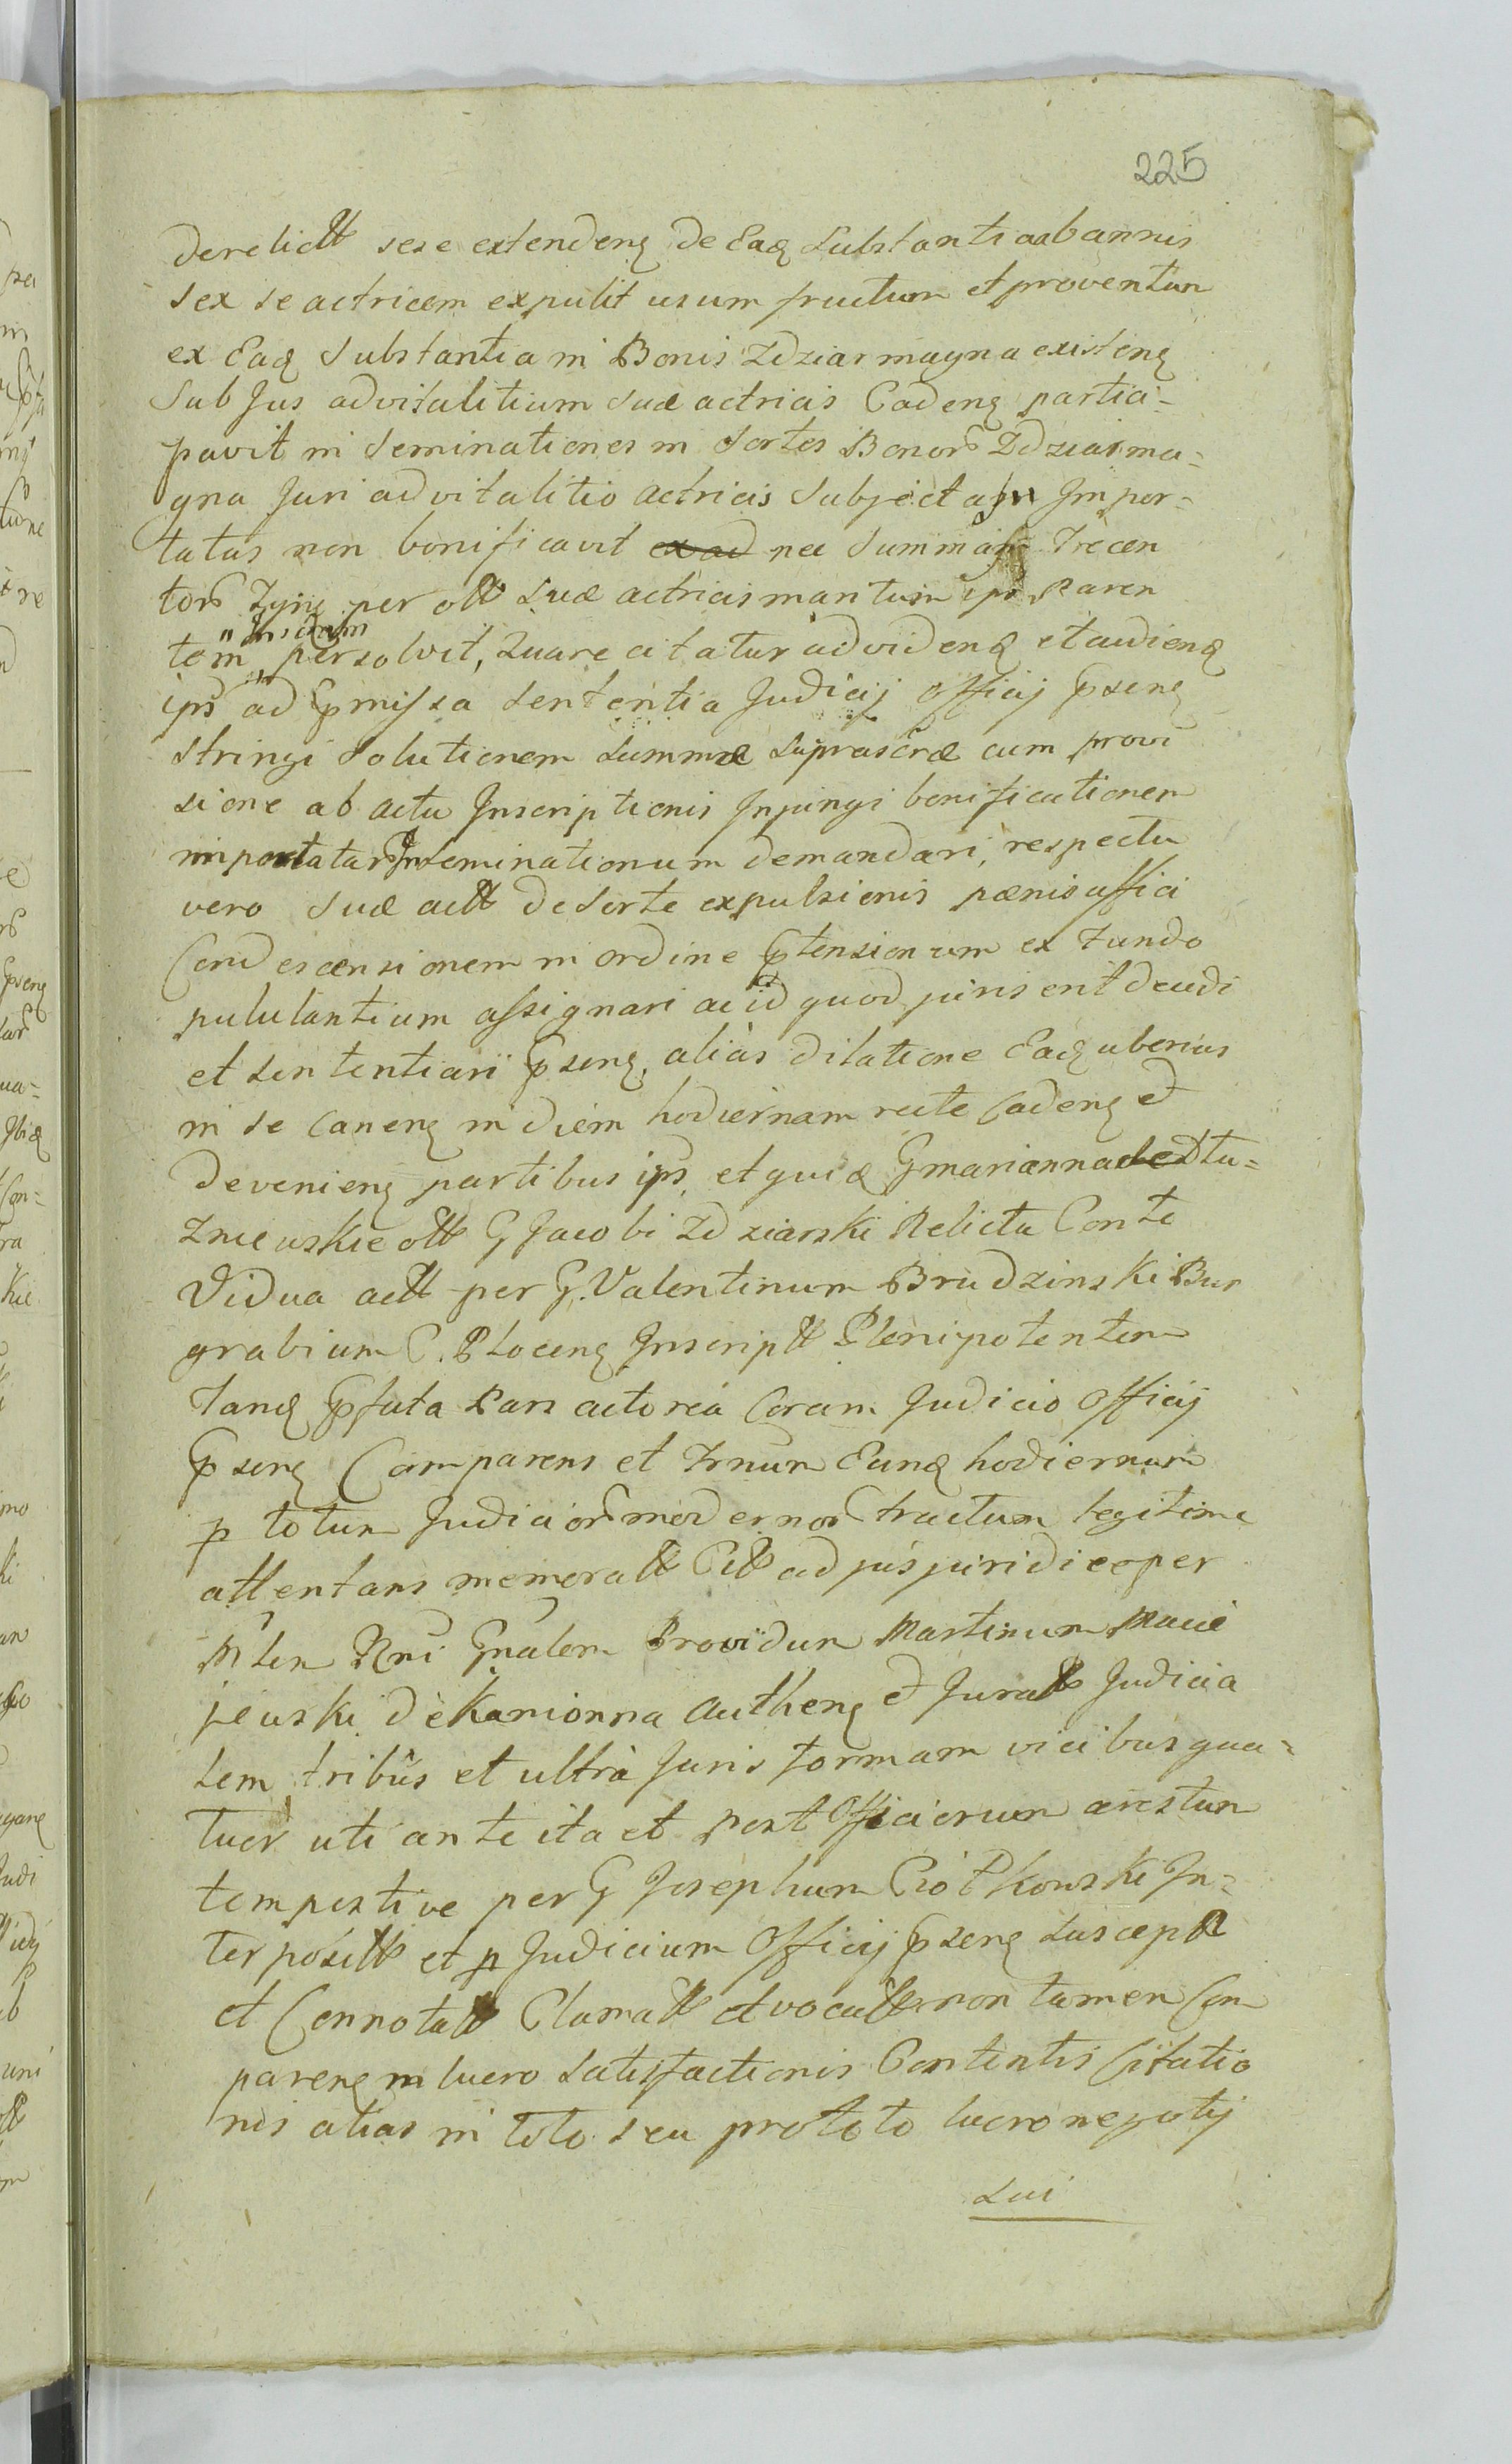 225
derelictt sese extendenq de Eaq Substantia ab annis
sex se actricem expulit usum fructum et proventum
ex Eaq Substantia in Bonis Zdziar magna existenq
Sub Jus advitalitium suæ actricis Cadenq partici=
pavit in Seminationes in Sortes Bonor Zdziar ma=
gna Juri advitalitio actricis Subjecta Impor=
tatas non bonificavit ex ad nec Summam Trecen
tor per ott suæ actricis maritum ips Paren
tem Inscriptam persolvit, Quare citatur ad videnq et audienq
ips ad pmissa Sententia Judicij Officij psenq
stringi Solutionem Summæ Suprascræ cum provi
sione ab actu Inscriptionis Injungi bonificationem
importatar Inseminationum demandari, respectu
vero Suæ actt de Sorte expulsionis pænis affici
Condescensionem in ordine ptensionum ex Fundo
pululantium assignari ac id quod juris erit decidi
et Sententiari psenq, aliàs dilatione Eaq uberius
in se Canenq in diem hodiernam recte Cadenq et
devenienq partibus ips, et quia G Marianna de Dłu=
zniewskie ott G Jacobi Zdziarski Relicta Conte
Vidua actt per G. Valentinum Brudzinski Bur
grabium C. Plocenq Inscriptt Plenipotentem
Tanq pfata Pars actorea Coram Judicio Officij
psenq Comparens et Trnum Eunq hodiernum
p totum Judicior modernor tractum legitime
attentans memoratt Citt ad jus juridice per
Mlem Rni Gnalem Providum Martinum Macie
jewski de Kamionna authenq et Juratt Judicia
lem tribûs et ultrà Juris formam vicibus qua=
tuor uti ante ita et post Officiorum arestum
tempestive per G Josephum Piotkowski In=
terpositt et p Judicium Officij psenq Susceptt
et Connotatt Clamatt et vocatt non tamen Com
parenq in lucro Satisfactionis Contentis Citatio
nis alias in toto seu pro toto lucro negotij
Sui